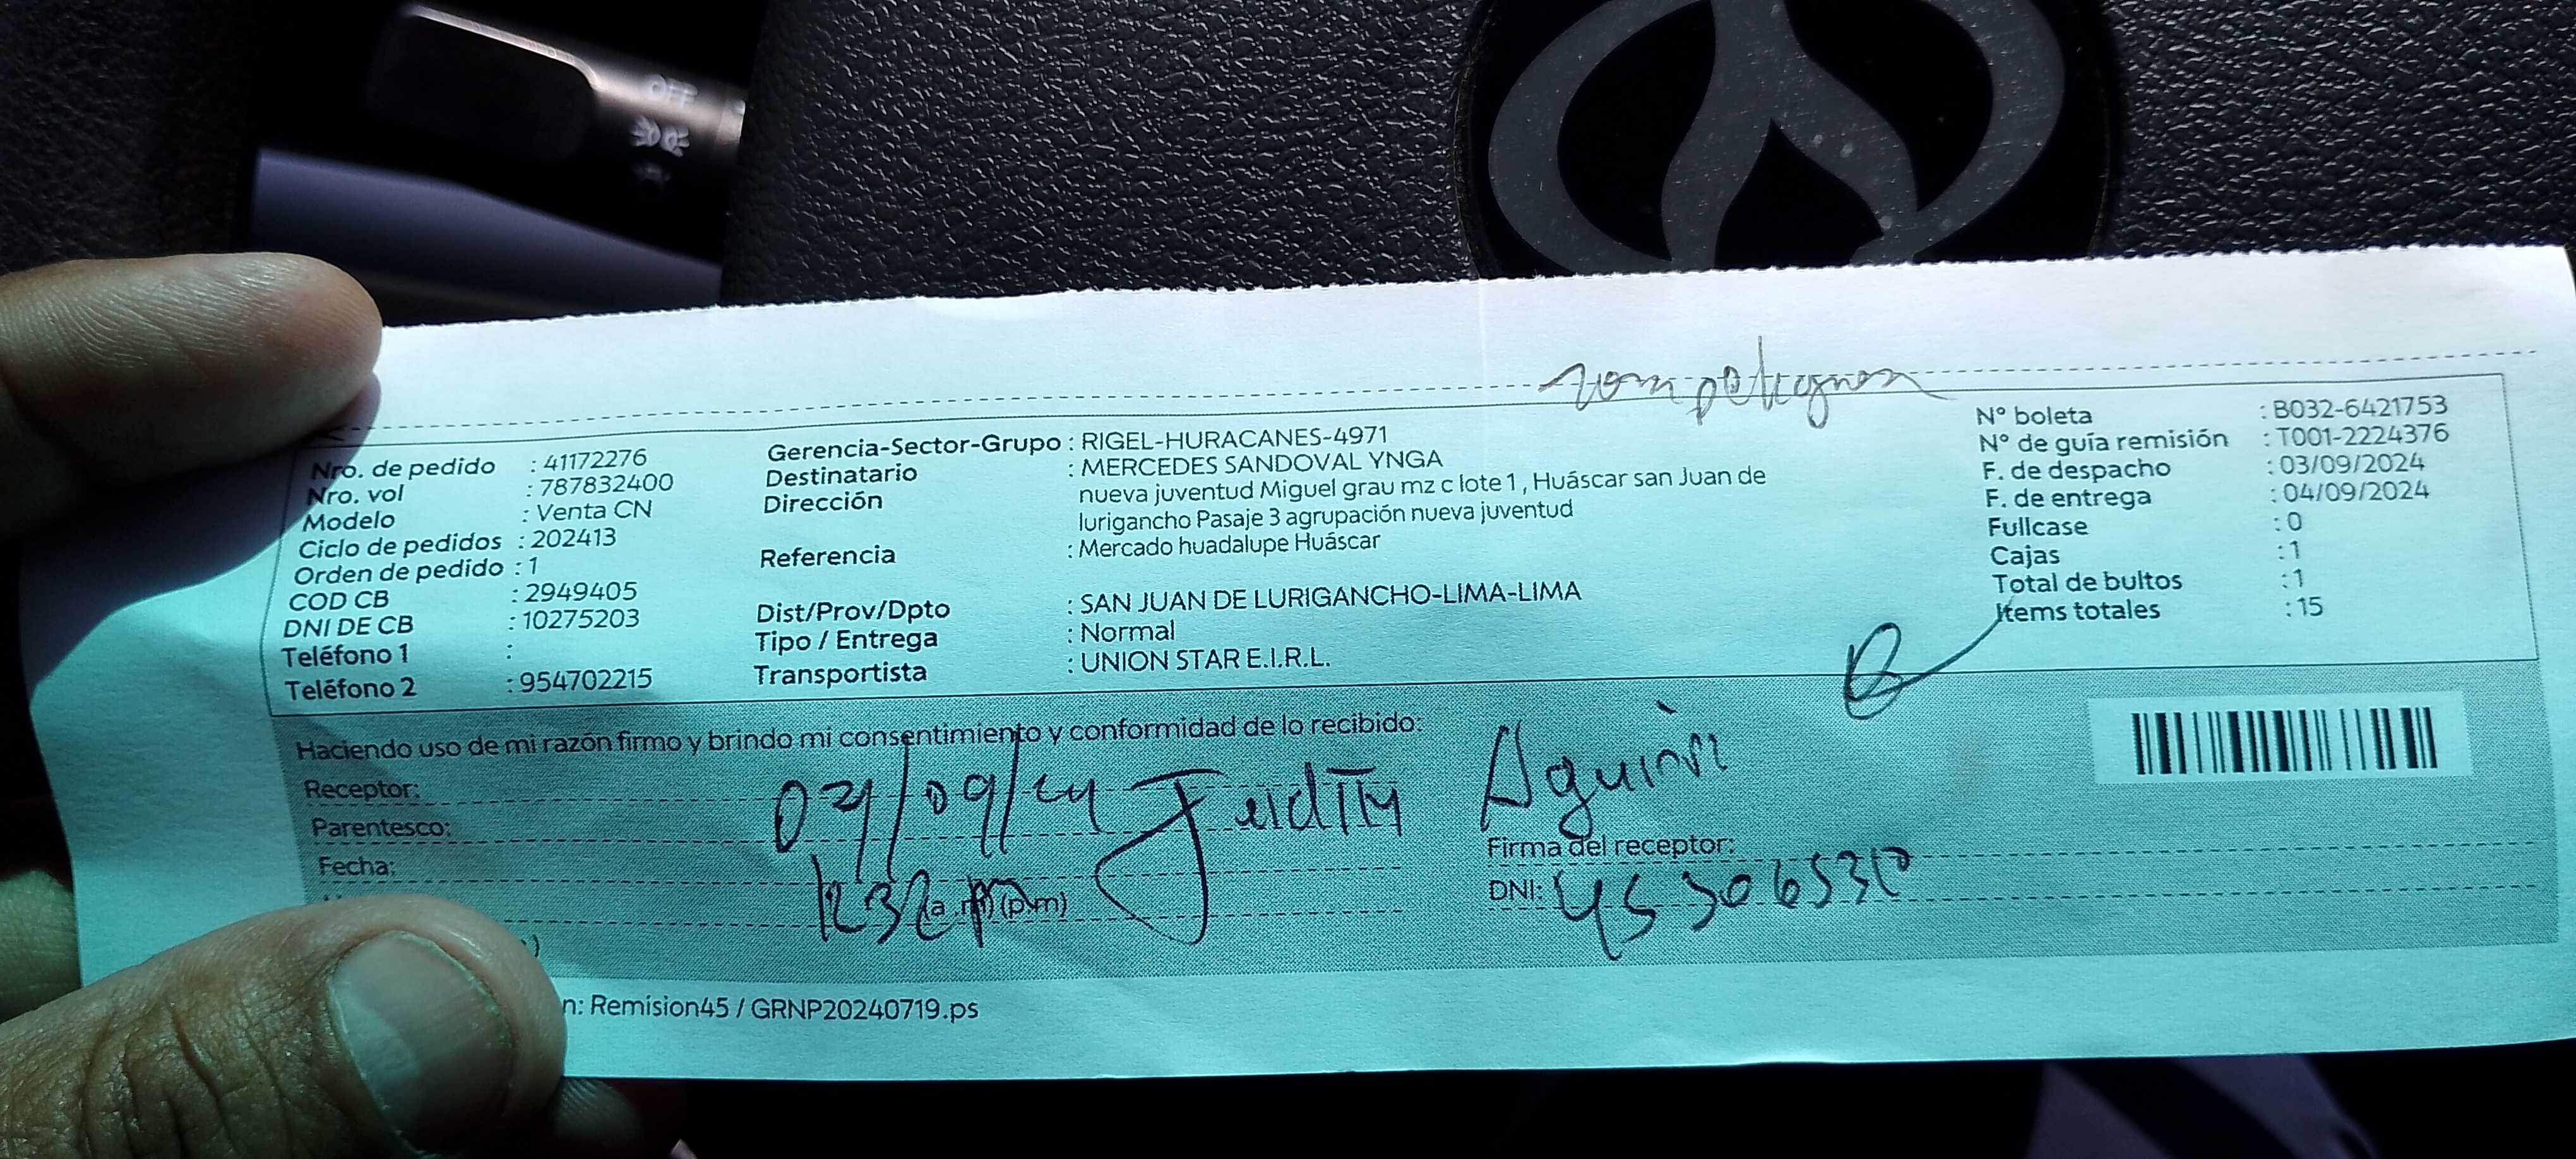 OFF
Nro. de pedido : 41172276
Nro. vol : 787832400
Modelo : Venta CN
Ciclo de pedidos : 202413
Orden de pedido : 1
COD CB : 2949405
DNI DE CB : 10275203
Teléfono 1 :
Teléfono 2 : 954702215
Gerencia-Sector-Grupo : RIGEL-HURACANES-4971
Destinatario : MERCEDES SANDOVAL YNGA
Dirección nueva juventud Miguel grau mz c lote 1 , Huáscar san Juan de
lurigancho Pasaje 3 agrupación nueva juventud
Referencia : Mercado huadalupe Huáscar
Dist/Prov/Dpto : SAN JUAN DE LURIGANCHO-LIMA-LIMA
Tipo / Entrega : Normal
Transportista : UNION STAR E.I.R.L.
N° boleta : B032-6421753
N° de guía remisión : T001-2224376
F. de despacho : 03/09/2024
F. de entrega : 04/09/2024
Fullcase : 0
Cajas : 1
Total de bultos : 1
Items totales : 15
Haciendo uso de mi razón firmo y brindo mi consentimiento y conformidad de lo recibido:
Receptor:
Parentesco:
Fecha:
(a.m) (p.m)
Firma del receptor:
DNI: 45306530
n: Remision45 / GRNP20240719.ps